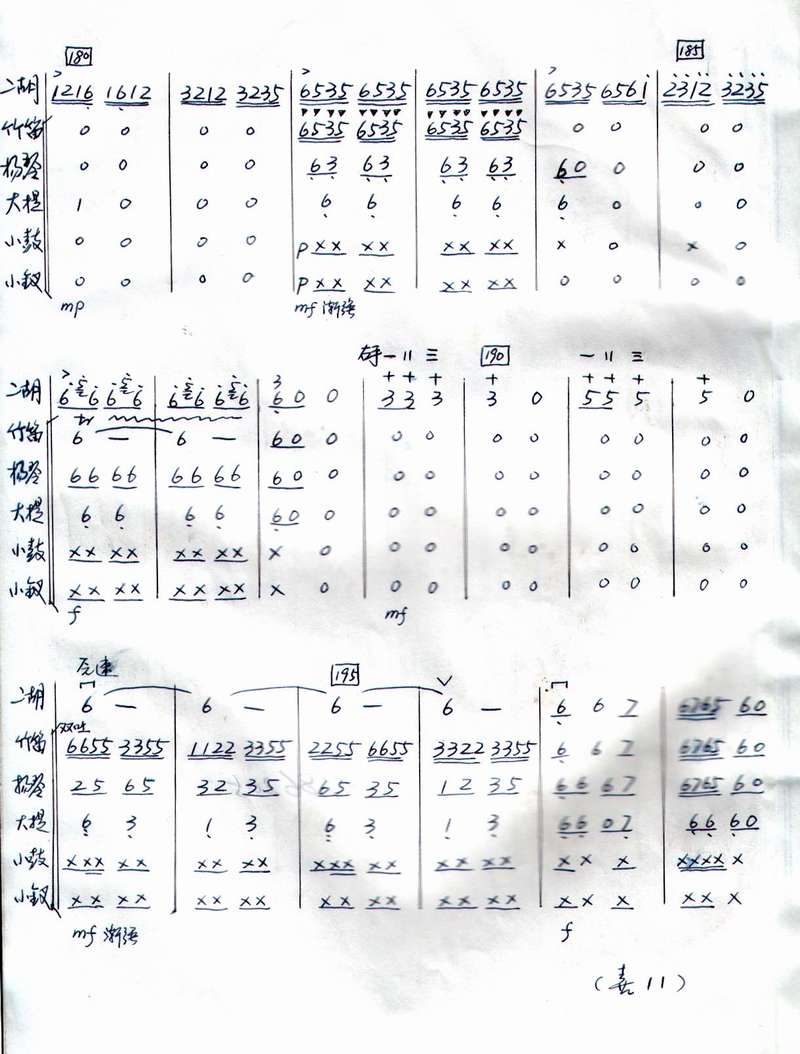 180 185
二胡 1216 1612 | 3212 3235 | 6535 6535 | 6535 6535 | 6535 6561 | 2312 3235
竹笛 0 0 | 0 0 | 6535 6535 | 6535 6535 | 0 0 | 0 0
扬琴 0 0 | 0 0 | 63 63 | 63 63 | 60 0 | 0 0
大提 1 0 | 0 0 | 6 6 | 6 6 | 6 0 | 0 0
小鼓 0 0 | 0 0 | p xx xx | xx xx | x 0 | x 0
小钗 0 0 | 0 0 | p xx xx | xx xx | 0 0 | 0 0
mp mf 渐强
右手 一 二 三 190 一 二 三
二胡 | 60 0 | 33 3 | 3 0 | 55 5 | 5 0
tr
竹笛 6 – | 6 – | 60 0 | 0 0 | 0 0 | 0 0 | 0 0
扬琴 66 66 | 66 66 | 60 0 | 0 0 | 0 0 | 0 0 | 0 0
大提 6 6 | 6 6 | 60 0 | 0 0 | 0 0 | 0 0 | 0 0
小鼓 xx xx | xx xx | x 0 | 0 0 | 0 0 | 0 0 | 0 0
小钗 xx xx | xx xx | x 0 | 0 0 | 0 0 | 0 0 | 0 0
f mf
元速 195
二胡 6 – | 6 – | 6 – | 6 – | 6 6 7 | 6765 60
双吐
竹笛 6655 3355 | 1122 3355 | 2255 6655 | 3322 3355 | 6 6 7 | 6765 60
扬琴 25 65 | 32 35 | 65 35 | 12 35 | 66 67 | 6765 60
大提 6 3 | 1 3 | 6 3 | 1 3 | 66 07 | 66 60
小鼓 xxx xx | xx xx | xxx xx | xx xx | xx x | xxxx x
小钗 xx xx | xx xx | xx xx | xx xx | xx x | xx x
mf 渐强 f
(喜 11)